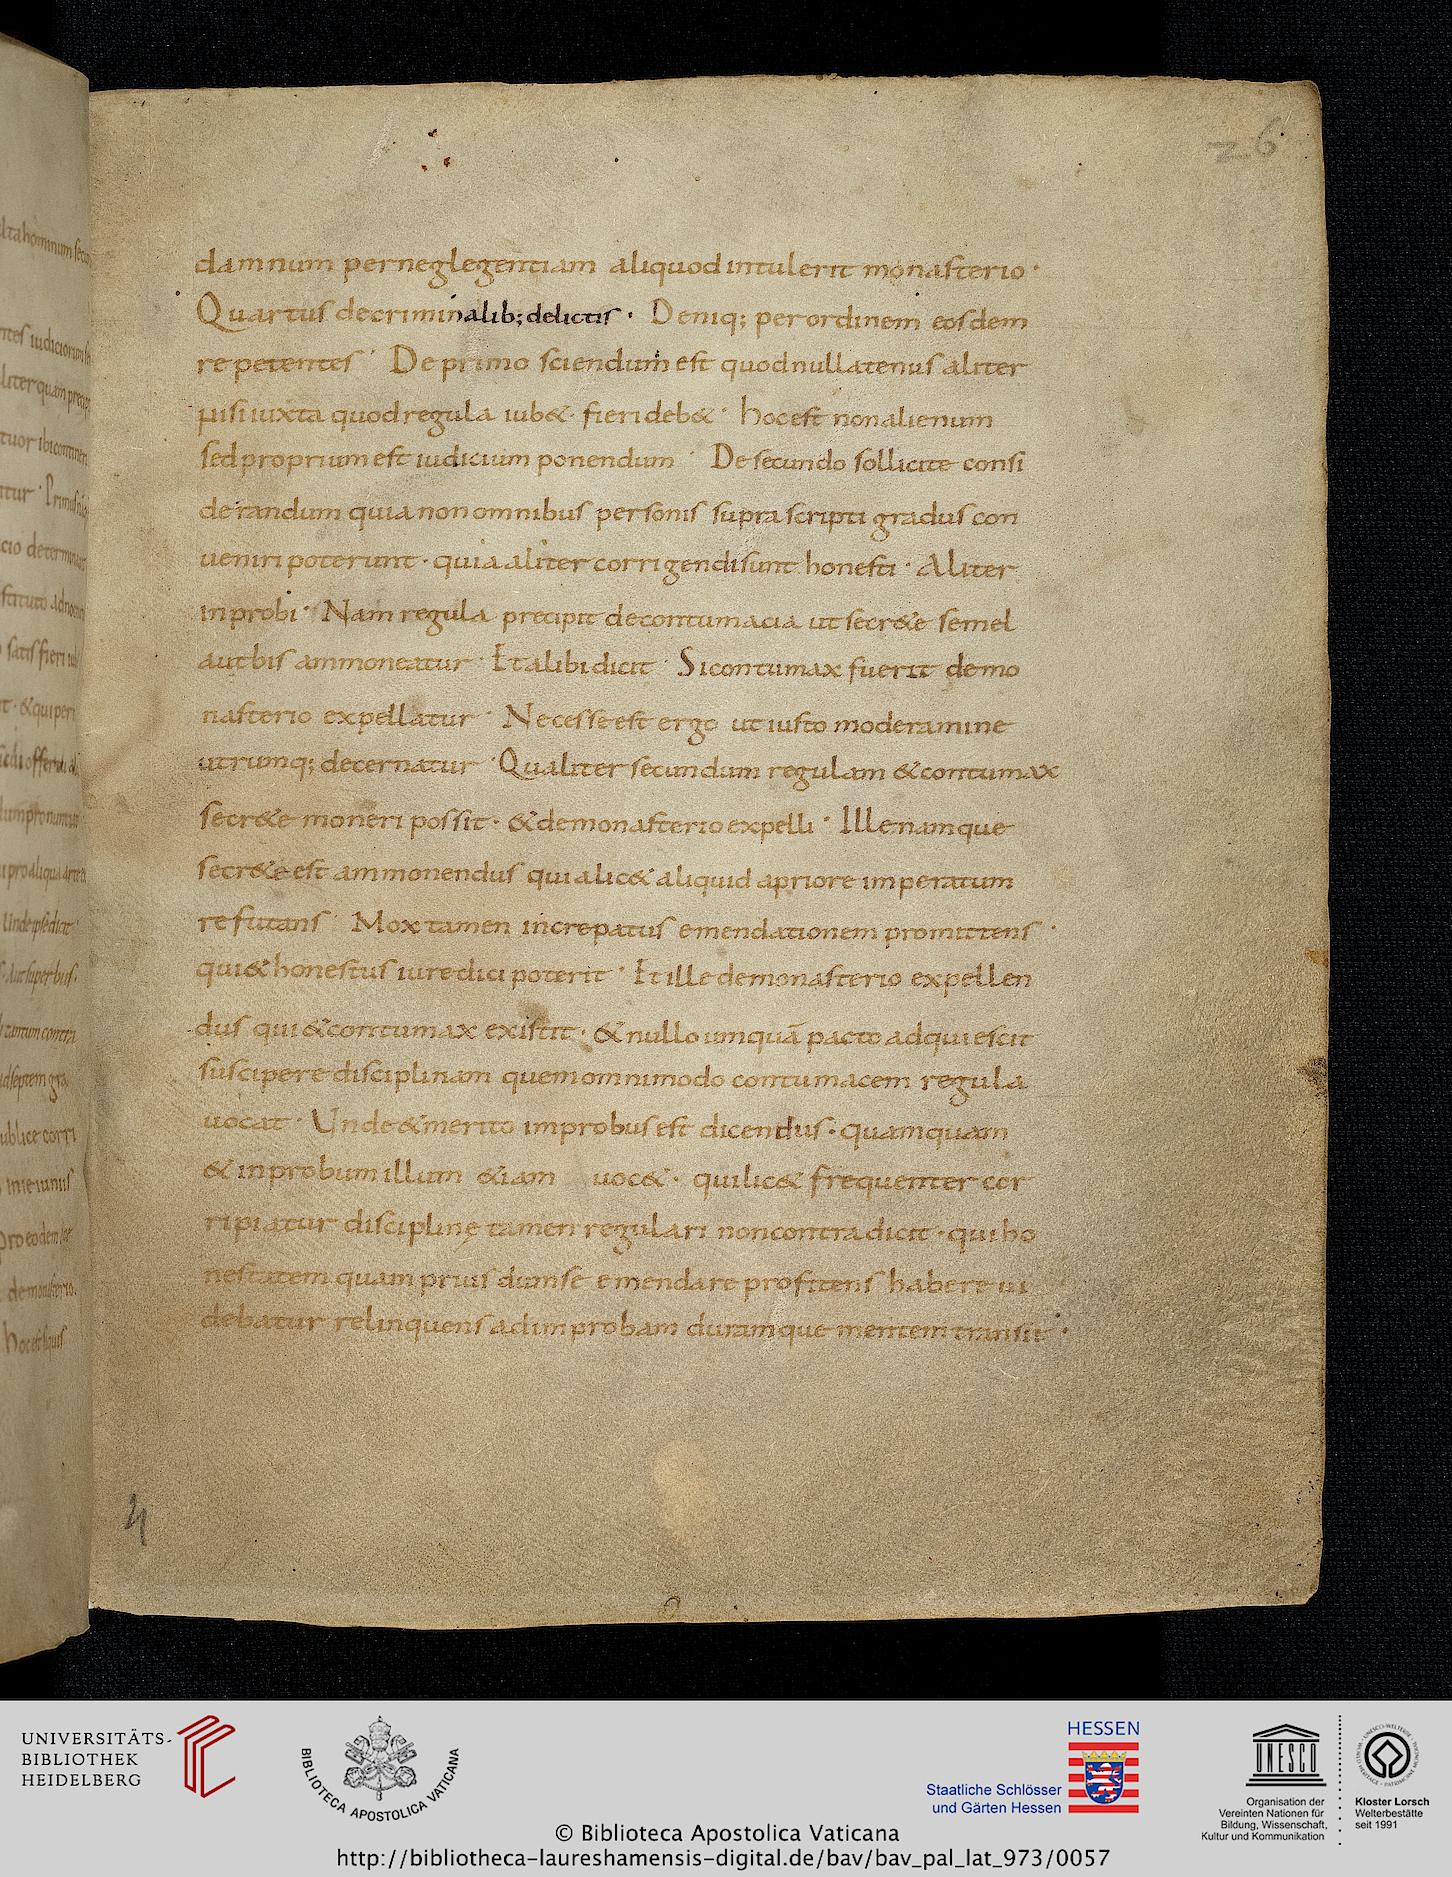 26
damnum perneglegentiam aliquod intulerit monasterio ·
Quartus decriminalib; delictis · Deniq; per ordinem eosdem
repetentes · De primo sciendum est quod nullatenus aliter
nisi iuxta quod regula iub& · fieri deb& · hoc est non alienum
sed proprium est iudicium ponendum · De secundo sollicite consi
derandum quia non omnibus personis supra scripti gradus con
ueniri poterunt · quia aliter corrigendi sunt honesti · Aliter
inprobi · Nam regula precipit decontumacia ut secr&e semel
aut bis ammoneatur · Et alibi dicit · Si contumax fuerit demo
nasterio expellatur · Necesse est ergo ut iusto moderamine
utrumq; decernatur · Qualiter secundum regulam & contumax
secr&e moneri possit · & demonasterio expelli · Ille namque
secr&e est ammonendus qui alic& aliquid apriore imperatum
refutans · Mox tamen increpatus emendationem promittens ·
qui & honestus iure dici poterit · Et ille demonasterio expellen
dus qui & contumax existit · & nullo umquā pacto adquiescit
suscipere disciplinam quem omnimodo contumacem regula
uocat · Unde & merito improbus est dicendus · quamquam
& inprobum illum &iam uoc& · qui lic& frequenter cor
ripiatur disciplinę tamen regulari non contradicit · qui ho
nestatem quam prius dum se emendare profitens habere ui
debatur relinquens ad improbam duramque mentem transit ·
4
UNIVERSITÄTS-
BIBLIOTHEK
HEIDELBERG
BIBLIOTECA APOSTOLICA VATICANA
HESSEN
Staatliche Schlösser
und Gärten Hessen
UNESCO
Organisation der
Vereinten Nationen für
Bildung, Wissenschaft,
Kultur und Kommunikation
Kloster Lorsch
Welterbestätte
seit 1991
© Biblioteca Apostolica Vaticana
http://bibliotheca-laureshamensis-digital.de/bav/bav_pal_lat_973/0057